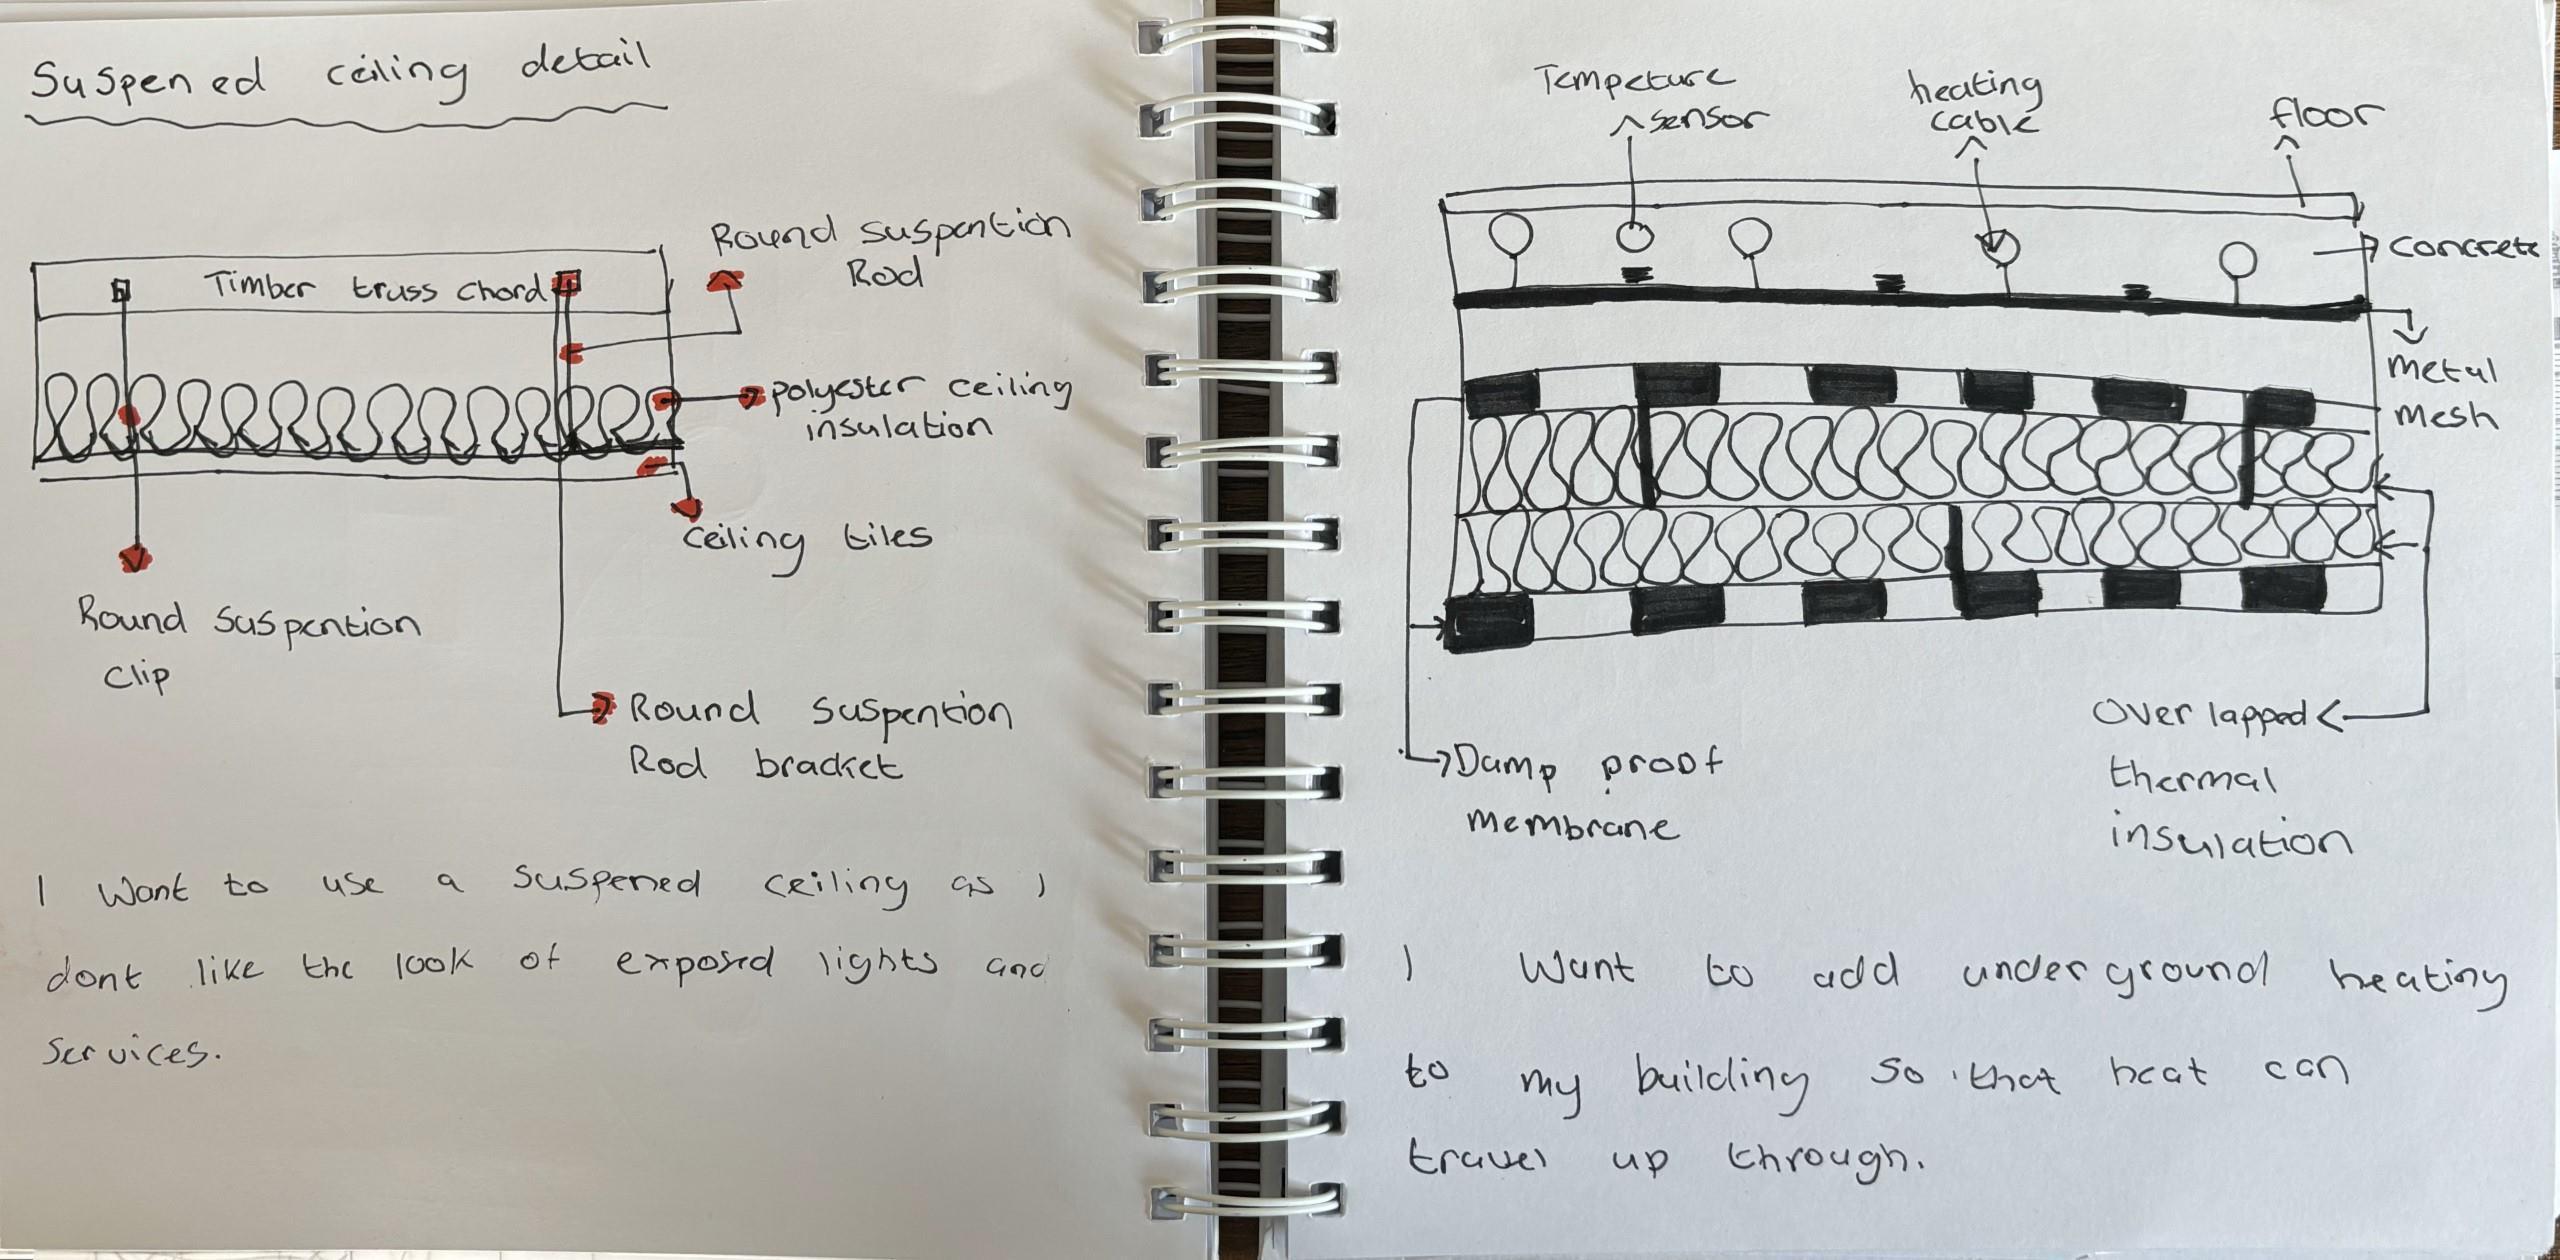 Suspened ceiling detail
Timber truss chord
Round suspention
Rod
polyester ceiling
insulation
ceiling tiles
Round suspention
clip
Round suspention
Rod bracket
I want to use a suspened ceiling as I
dont like the look of exposed lights and
services.
Tempeture
sensor
heating
cable
floor
concrete
metal
mesh
Over lapped
thermal
insulation
Damp proof
membrane
I want to add underground heating
to my building so that heat can
travel up through.